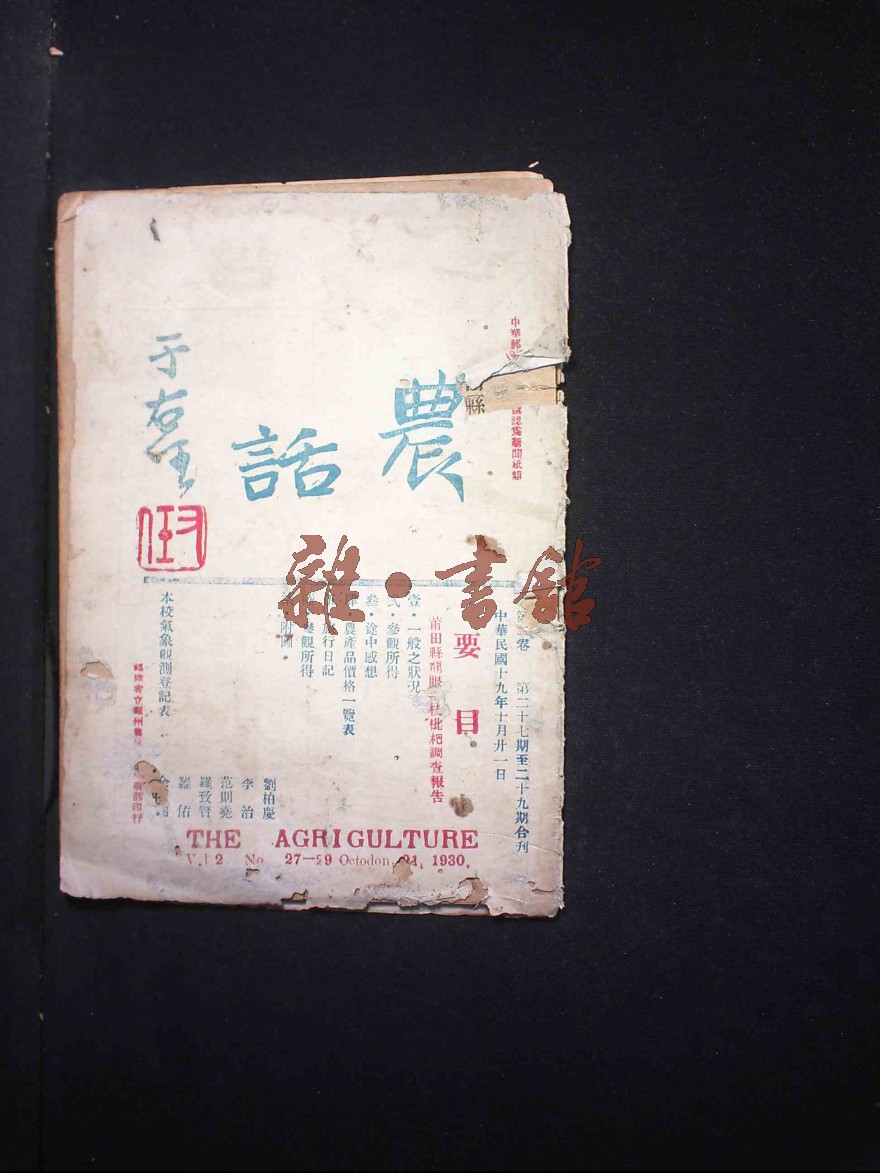 農話
于右任
中華郵
認為新聞紙類
縣
卷 第二十七期至二十九期合刊
中華民國十九年十月廿一日
要目
莆田縣龍眼 枝枇杷調查報告
壹·一般之狀況
弍·參觀所得
叁·途中感想
農產品價格一覽表
旅行日記
參觀所得
附圖
本校氣象觀測登記表
劉柏慶
李治
范則堯
羅致賢
羅佑
福建省立 州農
印行
雜·書館
THE AGRIGULTURE
V.l 2 No. 27—29 Octodon, 21, 1930.